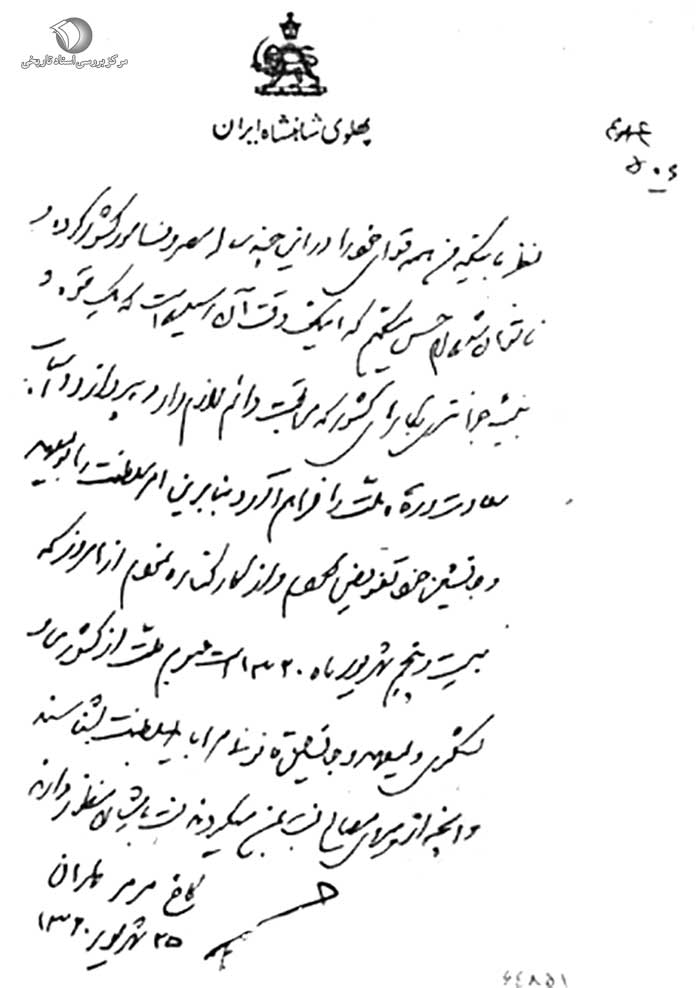 مرکز بررسی اسناد تاریخی
پهلوی شاهنشاه ایران
نظر باینکه من همه قوای خود را در این چند ساله مصروف امور کشور کرده و
ناتوان شده‌ام حس میکنم که اینک وقت آن رسیده است که یک قوه و
بنیه جوانتری بکارهای کشور که مراقبت دائم لازم دارد بپردازد و اسباب
سعادت و رفاه ملت را فراهم آورد بنابرین امر سلطنت را بولیعهد
و جانشین خود تفویض نمودم و از کار کناره نمودم از امروز که
بیست و پنج شهریور ماه ۱۳۲۰ است عموم ملت از کشوری و
لشکری ولیعهد و جانشین قانونی مرا باید بسلطنت بشناسند
و آنچه از پیروی مصالح نسبت بمن میکردند نسبت بایشان منظور دارند
کاخ مرمر طهران
۲۵ شهریور ۱۳۲۰
۶۴۸۵۱